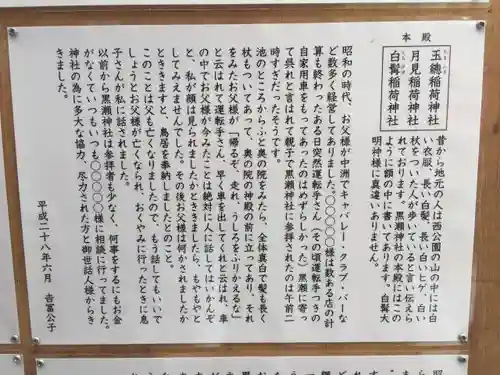 本殿
玉鏡稲荷神社
月見稲荷神社
白髯稲荷神社
昔から地元の人は西公園の山の中には白
い衣服、長い白髪、長い白ヒゲ、白い
杖をついた人が歩いていると言い伝えら
れております。黒瀬神社の本殿にはこの
ように額の中に書いてあります。白髯大
明神様に真違いありません。
昭和の時代、お父様が中洲でキャバレー・クラブ・バーな
ど数多く経営してありました。〇〇〇〇〇様は数ある店の計
算も終わったある日突然運転手さん(その頃運転手つきの
自家用車をもってあったのはめずらしかった)黒瀬に寄っ
て呉れと言はれて親子で黒瀬神社に参拝されたのは午前二
時すぎだったそうです。
池のところからふと奥の院をみたら、全体真白で髪も長く
杖もついてあって、奥の院の神殿の前に立っており、それ
をみたお父様が「帰るぞ、走れ、うしろをふりかえるな」
と云はれて運転手さん、早く車を出してくれと云はれ、車
の中でお父様が今みたことは絶対に人に話してはいかんぞ
と、私が顔は見られましたかときましたら、もやもやと
してみえませんでした。その後お父様は何かされましたか
とききますと、鳥居を奉納しましたとのこと。
このことは父も亡くなりましたので、もう話してもいいで
しょうとお父様が亡くなられ、おくやみに行ったときに息
子さんが私に話されました。
以前から黒瀬神社は参拝者も少なく、何事をするにもお金
がなくていつもいつも〇〇〇〇様に相談に行ってました。
神社の為に多大な協力、尽力された方と御世話人様からき
きました。
平成二十八年六月 吉富公子